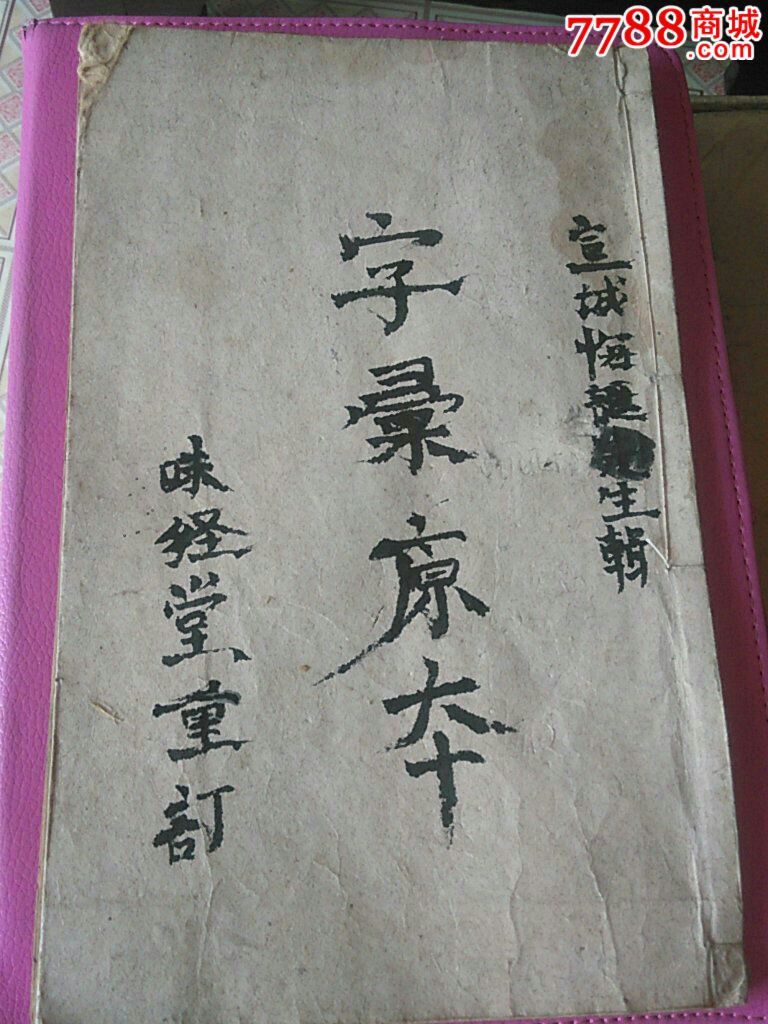 7788商城
.com
宣城悔誕先生輯
字彙原夲
味経堂重訂